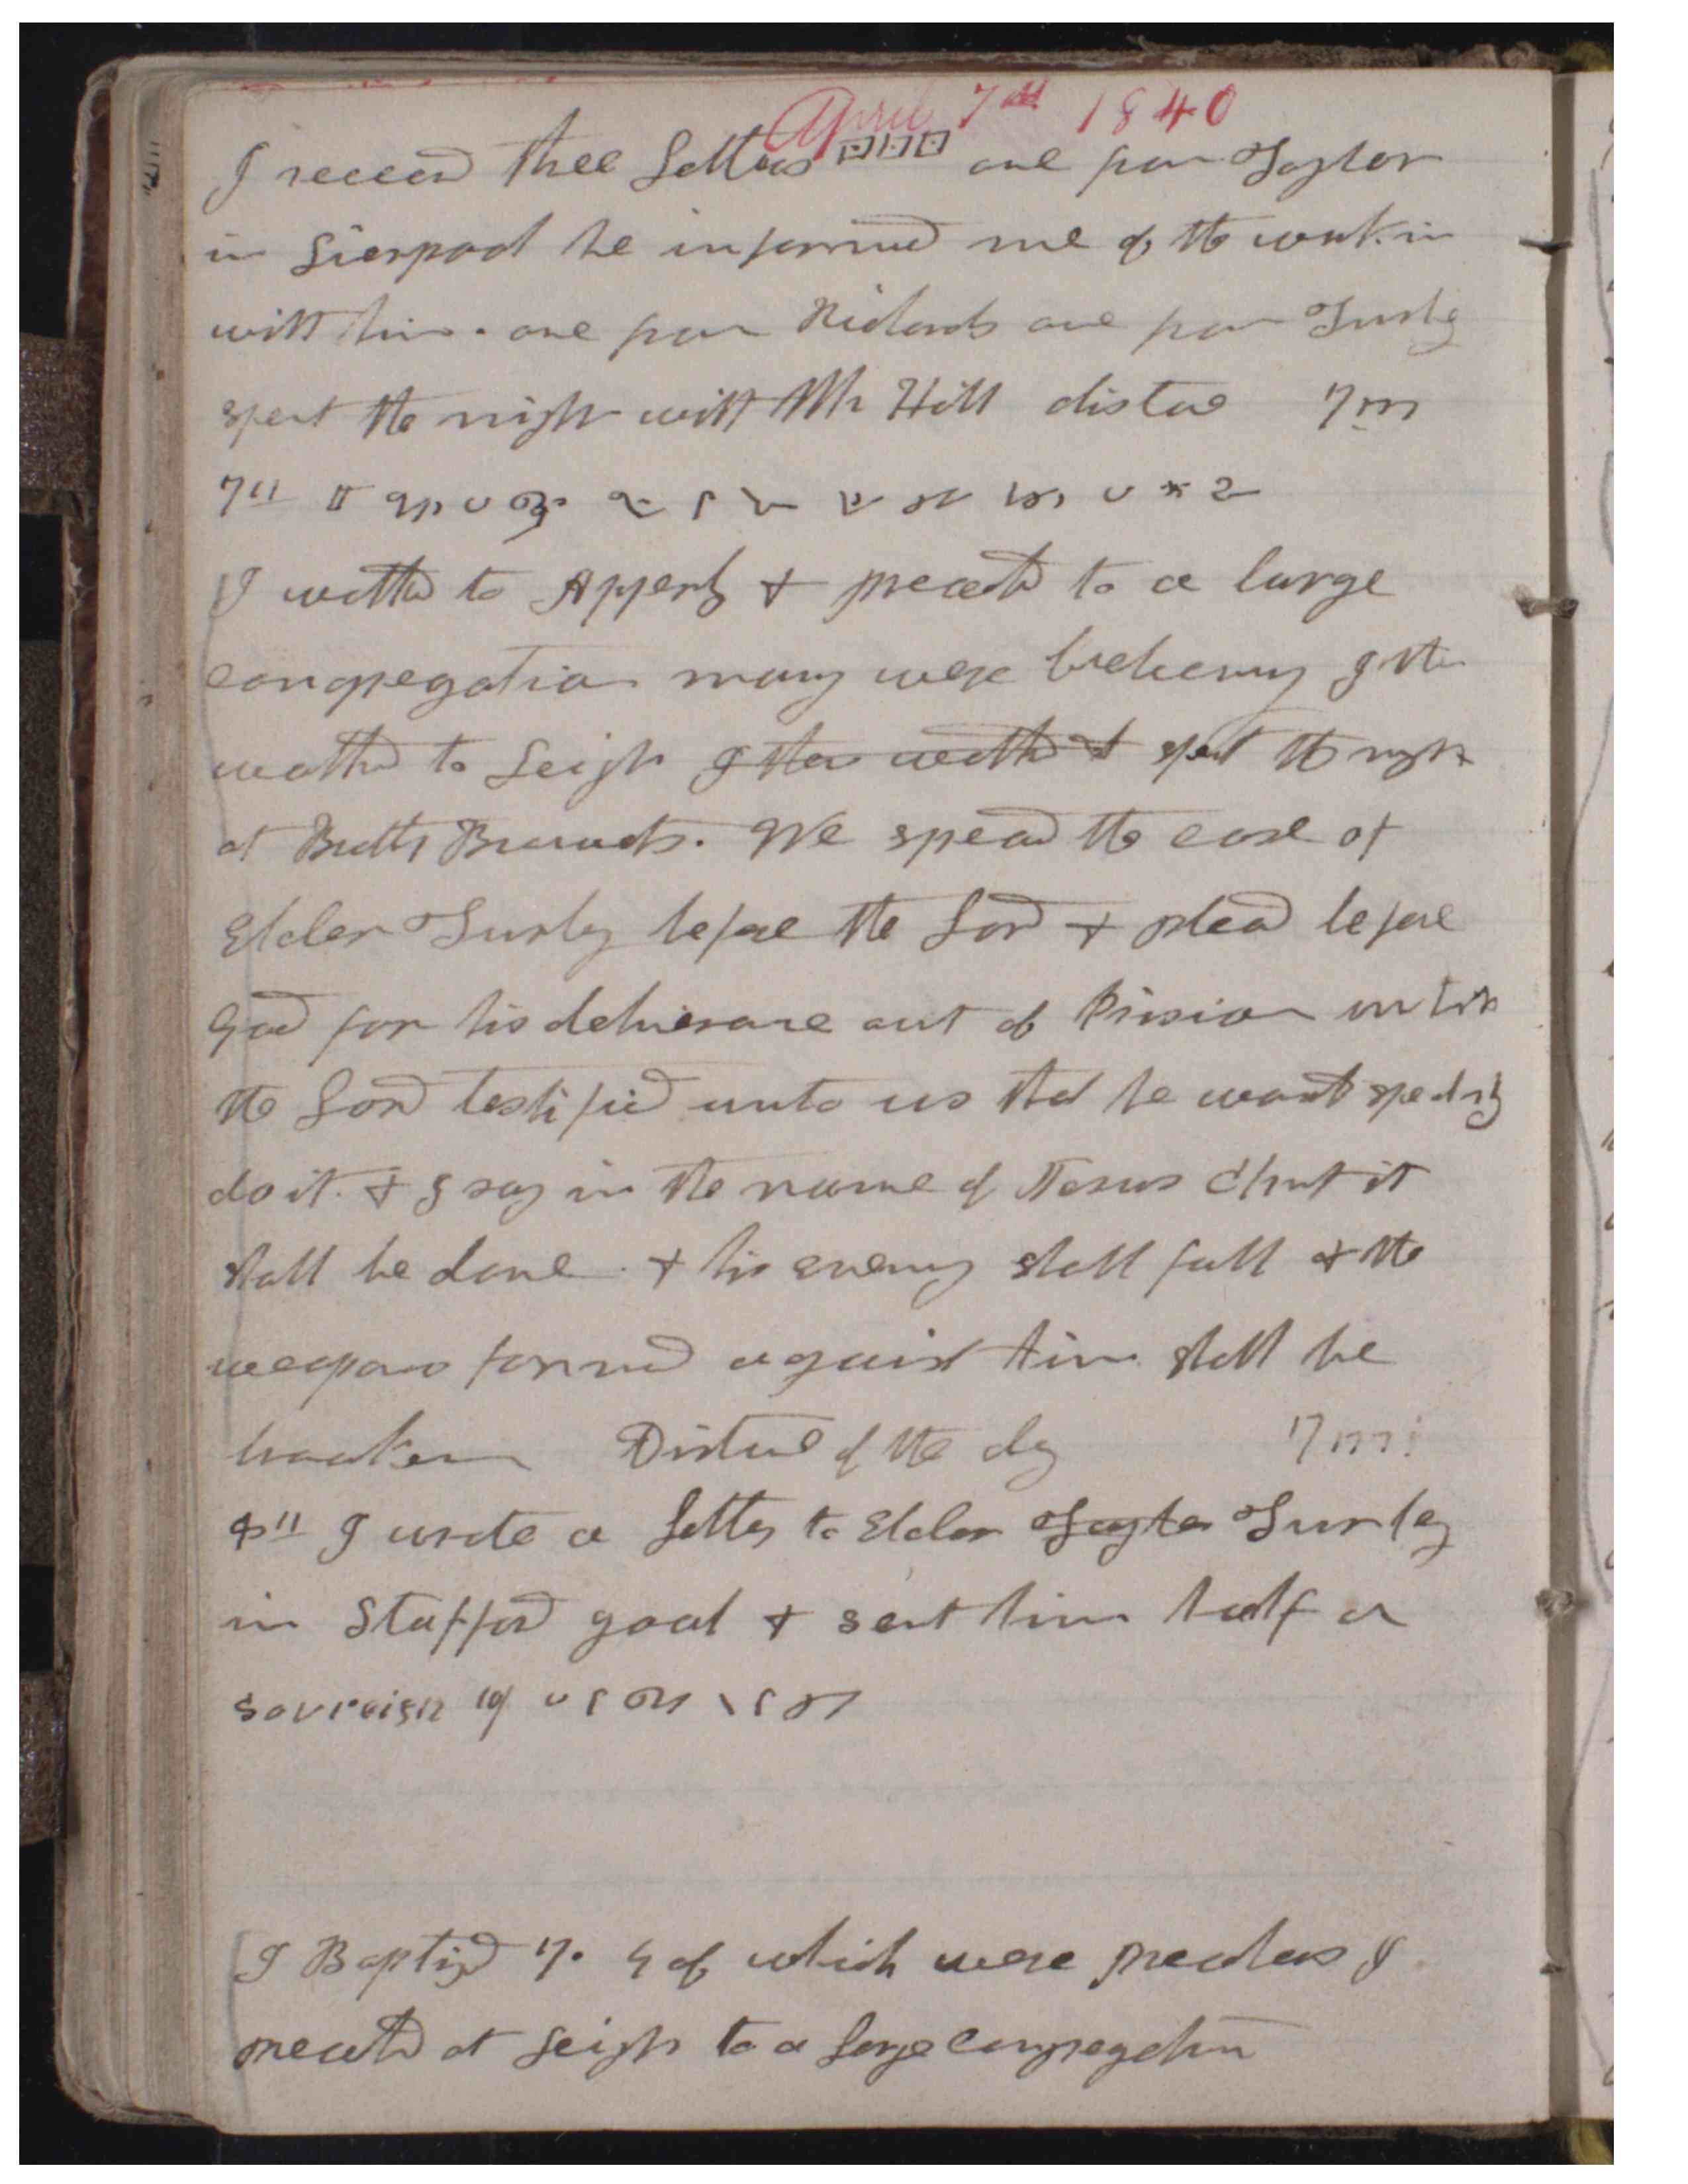 April 7th 1840
I received three Letters one from Taylor
in Liverpool he informed me of the work in
with him. one from Richards one from Turley
spent the night with Mr Hill distance 7 m
7th
I walked to Apperly & preached to a large
congregation many were believing I then
walked to Leigh I then walked & spent the night
at Brother Browetts. We spread the case of
Elder Turley before the Lord & plead before
God for his deliverance out of Prision
the Lord testified unto us that he would speedily
do it. & I say in the name of Jesus Christ it
shall be done. & his enemy shall fall & the
weapons formed against him shall be
broaken Distance of the day 7 m
8th I wrote a Letter to Elder Taylor Turley
in Stafford goal & sent him half a
sovreign
I Baptized 7. 4 of which were preachers I
preached at Leigh to a large congregation